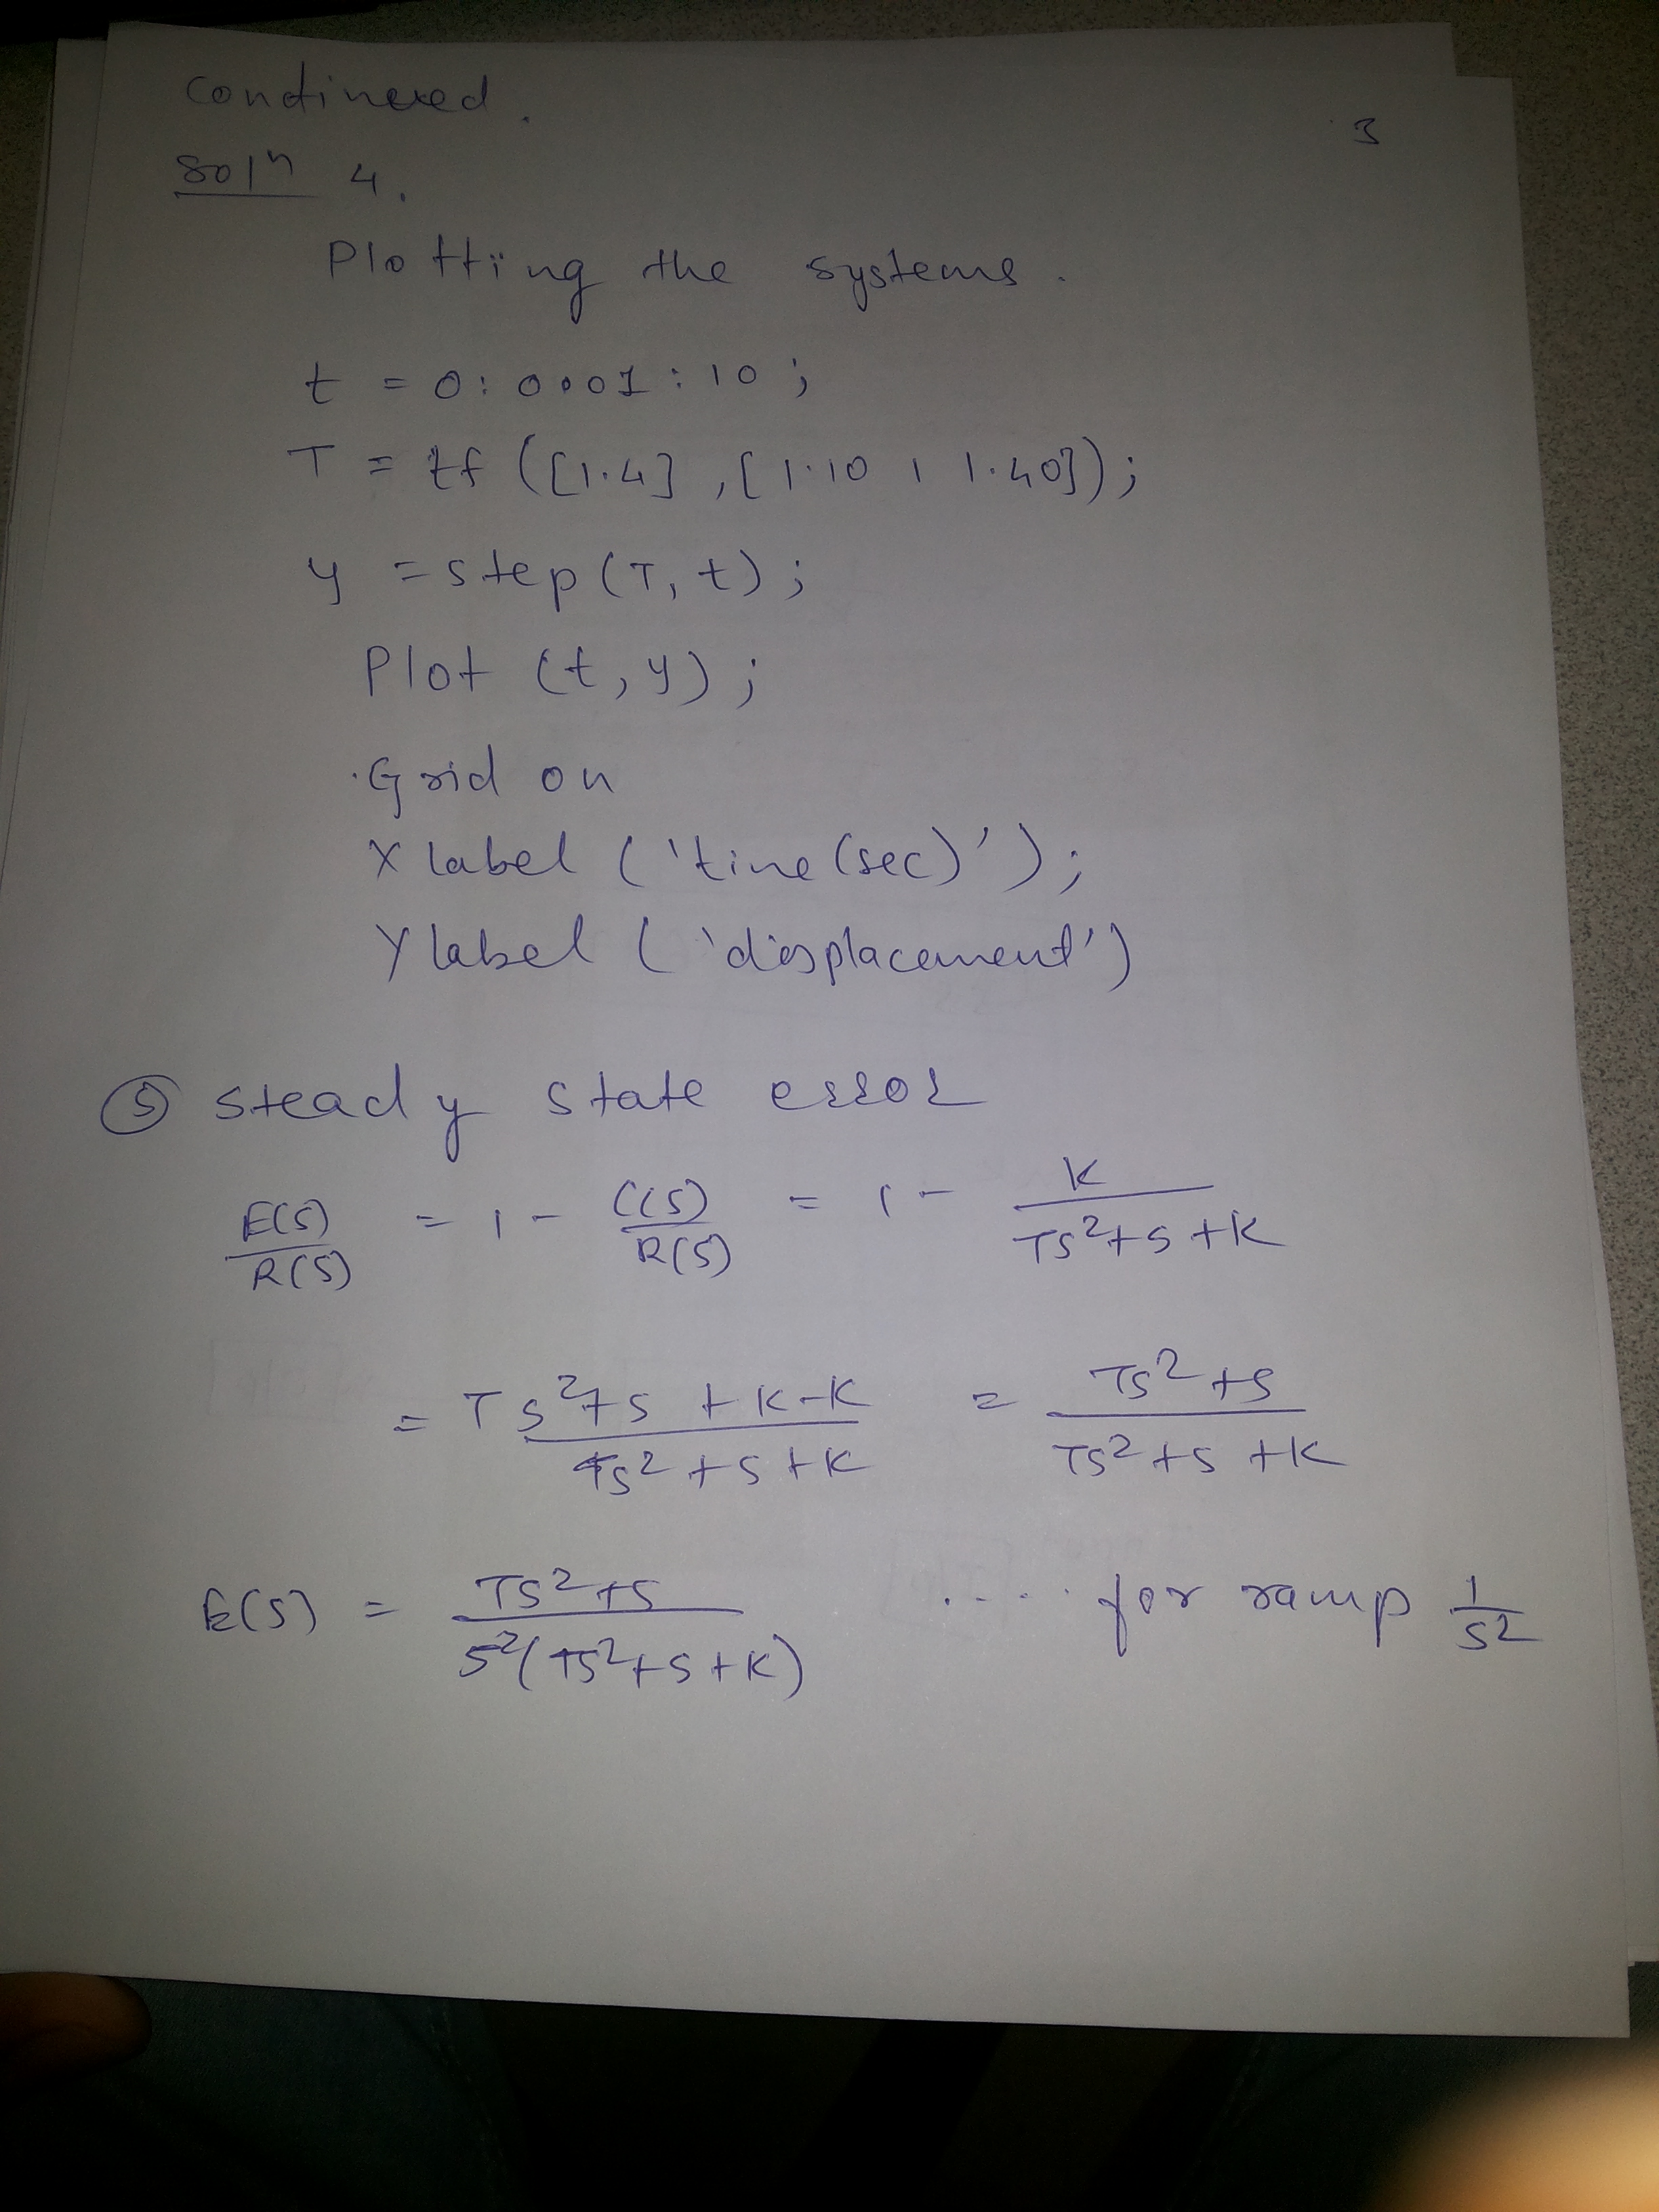 Continued.
3
Solⁿ 4.
Plotting the systems.
t = 0:0.001:10;
T = tf([1.4],[1.10 1 1.40]);
y = step(T,t);
Plot (t,y);
Grid on
X label ('time (sec)');
Y label ('displacement')
⑤ steady state error
E(S)/R(S) = 1 - C(S)/R(S) = 1 - K/(TS²+S+K)
= (TS²+S+K-K)/(TS²+S+K) = (TS²+S)/(TS²+S+K)
E(S) = (TS²+S)/(S²(TS²+S+K)) .... for ramp 1/S²